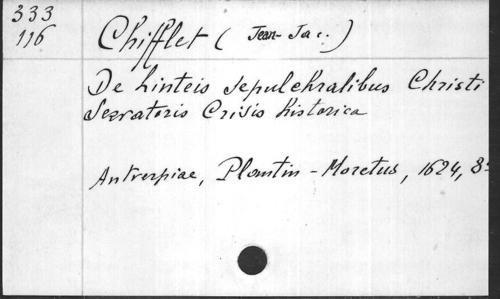 333
116
Chifflet ( Jean-Jac. )
De linteis sepulchralibus Christi
Servatoris Crisis historica
Antverpiae, Plantin-Moretus, 1624, 8º